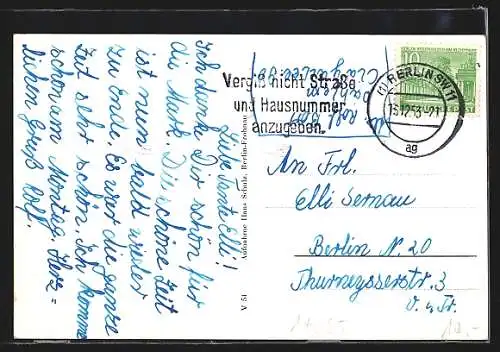 Liebe Tante Elli!
Ich danke Dir schön für
die Mark. Die schöne Zeit
ist nun bald wieder
zu Ende. Es war die ganze
Zeit sehr schön. Ich komme
schon am Montag. Herz=
lichen Gruß Rolf.
V 51 Aufnahme Hans Schulz, Berlin-Frohnau
Vergiß nicht Straße
und Hausnummer
anzugeben
BERLIN SW 11
ag
10
An Frl.
Elli Sernau
Berlin N. 20
Thurneysserstr. 3
v. 4 Tr.